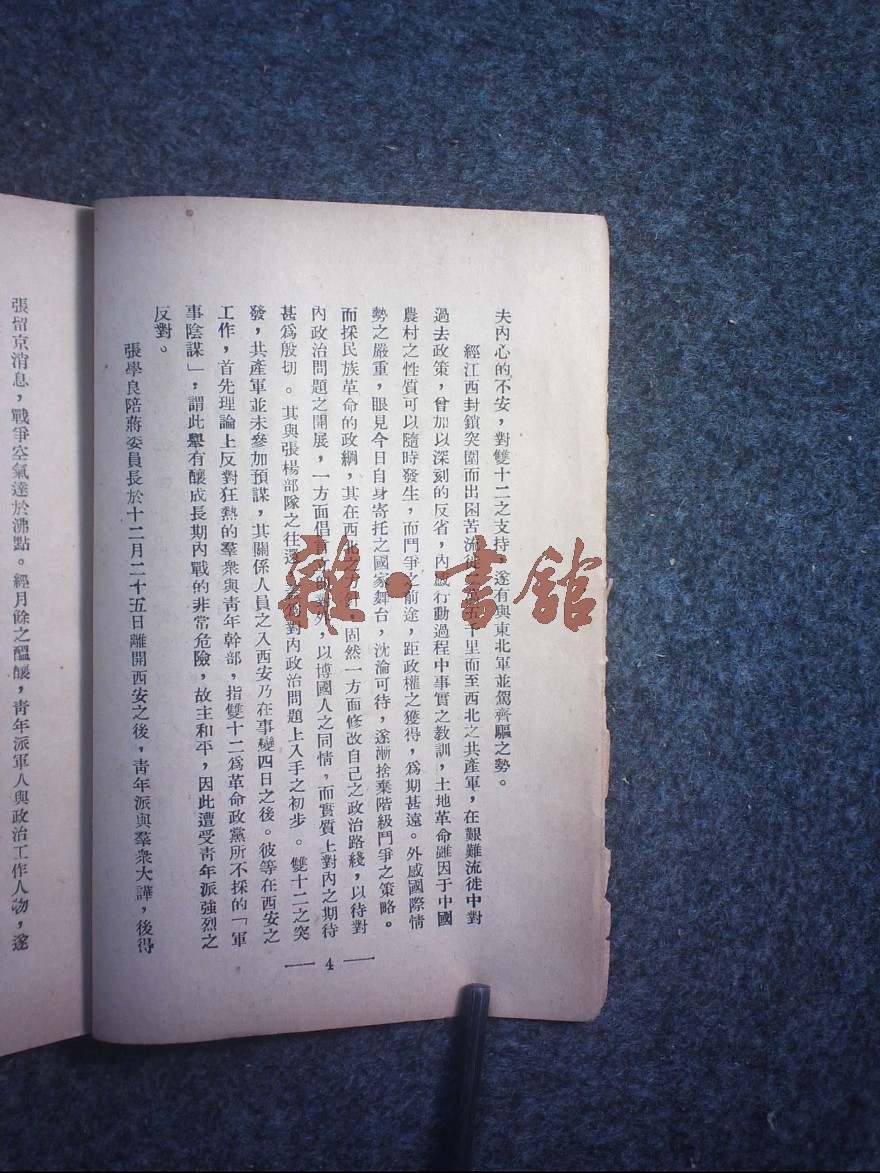 夫內心的不安，對雙十二之支持，遂有與東北軍並駕齊驅之勢。
經江西封鎖突圍而出困苦流徙千里而至西北之共產軍，在艱難流徙中對
過去政策，曾加以深刻的反省，內感行動過程中事實之教訓，土地革命雖因于中國
農村之性質可以隨時發生，而鬥爭之前途，距政權之獲得，爲期甚遠。外感國際情
勢之嚴重，眼見今日自身寄托之國家舞台，沈淪可待，遂漸捨棄階級鬥爭之策略。
而採民族革命的政綱，其在西北，固然一方面修改自己之政治路綫，以待對
內政治問題之開展，一方面倡言對外，以博國人之同情，而實質上對內之期待
甚爲殷切。其與張楊部隊之往還，對內政治問題上入手之初步。雙十二之突
發，共產軍並未參加預謀，其關係人員之入西安乃在事變四日之後。彼等在西安之
工作，首先理論上反對狂熱的羣衆與青年幹部，指雙十二爲革命政黨所不採的「軍
事陰謀」，謂此舉有釀成長期內戰的非常危險，故主和平，因此遭受青年派強烈之
反對。
張學良陪蔣委員長於十二月二十五日離開西安之後，青年派與羣衆大譁，後得
— 4 —
張留京消息，戰爭空氣達於沸點。經月餘之醞釀，青年派軍人與政治工作人物，遂
雜·書館